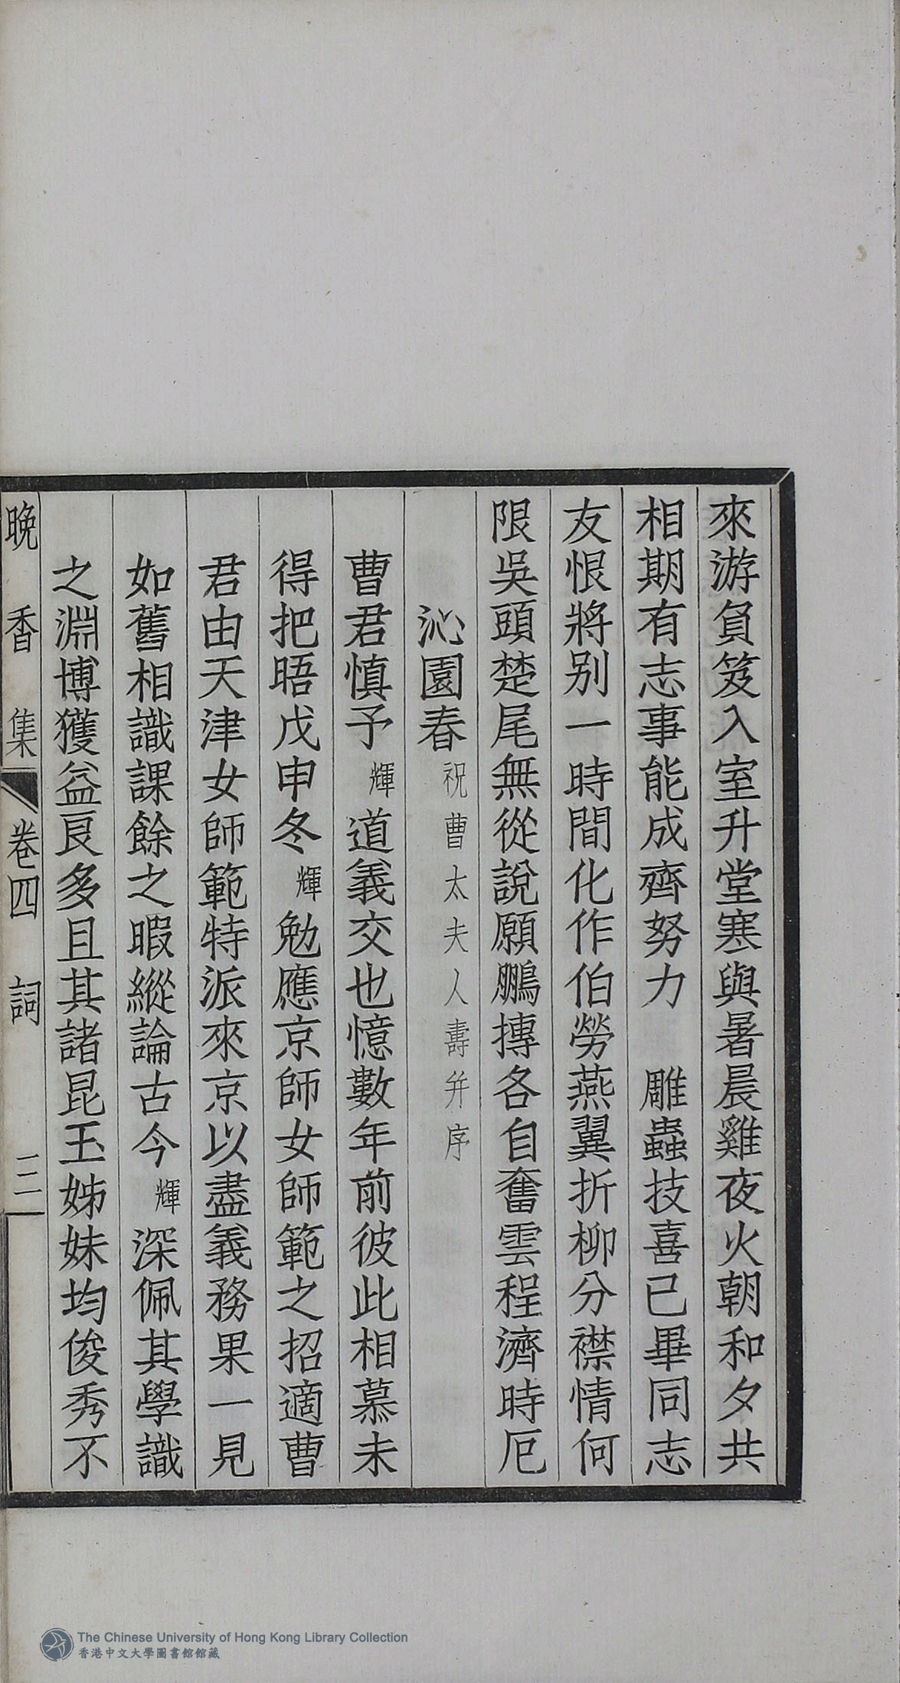 來游負笈入室升堂寒與暑晨雞夜火朝和夕共
相期有志事能成齊努力　雕蟲技喜已畢同志
友恨將别一時間化作伯勞燕翼折柳分襟情何
限吳頭楚尾無從說願鵬摶各自奮雲程濟時厄
沁園春祝曹太夫人壽并序
曹君慎予輝道義交也憶數年前彼此相慕未
得把晤戊申冬輝勉應京師女師範之招適曹
君由天津女師範特派來京以盡義務果一見
如舊相識課餘之暇縱論古今輝深佩其學識
之淵博獲益良多且其諸昆玉姊妹均俊秀不
晚香集　卷四　詞　三
The Chinese University of Hong Kong Library Collection
香港中文大學圖書館館藏